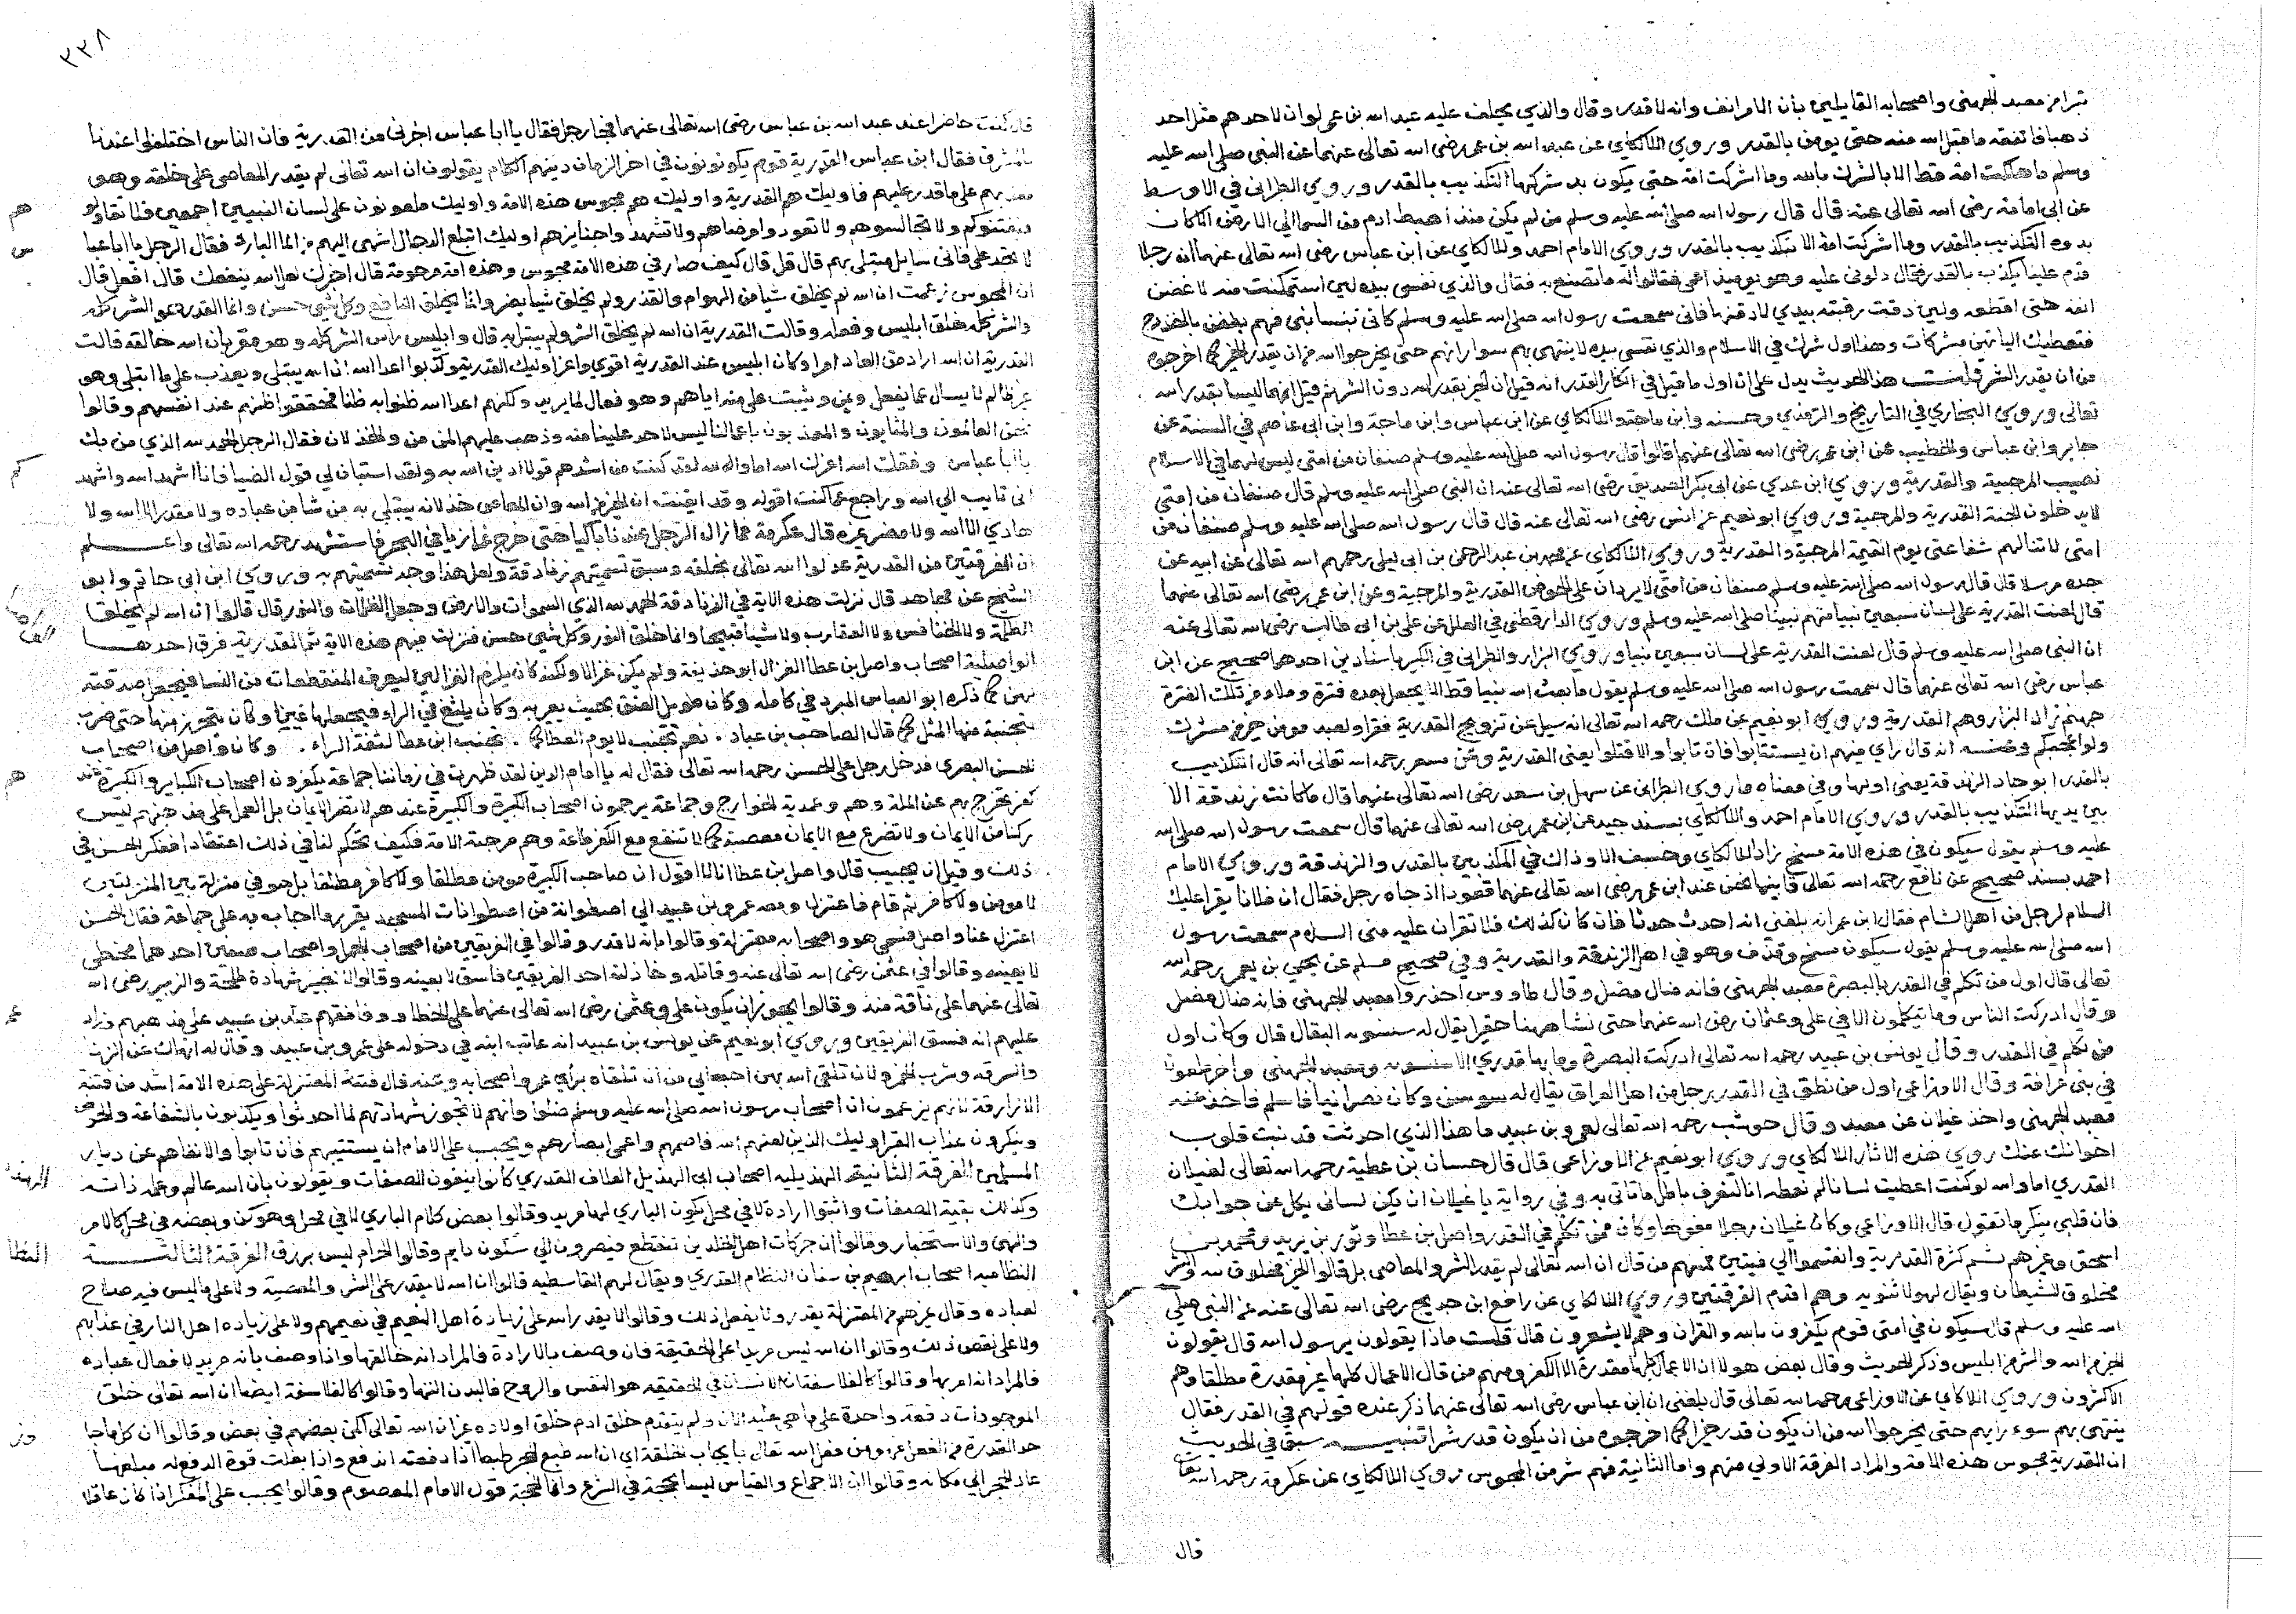 تبرا من معبد الجهني واصحابه القايلين بأن الامر انف وانه لا قدر وقال والذي يحلف عليه عبد الله بن عمر لو ان لاحدهم مثل احد
ذهبا فانفقه ما قبل الله منه حتى يومن بالقدر وروي اللالكاي عن عبد الله بن عمر رضي الله تعالى عنهما عن النبي صلى الله عليه
وسلم ما هلكت امة قط الا بالشرك بالله وما اشركت امة حتى يكون بدء شركها التكذيب بالقدر وروي الطبراني في الاوسط
عن ابي امامة رضي الله تعالى عنه قال قال رسول الله صلى الله عليه وسلم من لم يكن منذ اهبط ادم من السما الى الارض الا كان
بدوه التكذيب بالقدر وما اشركت امة الا بتكذيب بالقدر وروي الامام احمد واللالكاي عن ابن عباس رضي الله تعالى عنهما انه رجلا
قدم علينا يكذب بالقدر فقال دلوني عليه وهو يوميذ اعمى فقالوا له ما تصنع به فقال والذي نفسي بيده لين استمكنت منه لاعضن
انفه حتى اقطعه ولين دقت رقبته بيدي لادقنها فاني سمعت رسول الله صلى الله عليه وسلم كاني بنسا بني فهم يطفن بالخزرج
تصطك الياتهن مشركات وهذا اول شرك في الاسلام والذي نفسي بيده لا ينتهي بهم سوا رايهم حتى يخرجوا الله من ان يقدر الخير كما اخرجوه
من ان يقدر الشر هذا الحديث يدل على ان اول ما قيل في انكار القدر انه قيل ان الخير بقدر الله دون الشر ثم قيل انهما ليسا بقدر الله
تعالى وروي البخاري في التاريخ والترمذي وحسنه وابن ماجة واللالكاي عن ابن عباس وابن ماجة وابن ابي عاصم في السنة عن
جابر وابن عباس والخطيب عن ابن عمر رضي الله تعالى عنهم قالوا قال رسول الله صلى الله عليه وسلم صنفان من امتي ليس لهما في الاسلام
نصيب المرجية والقدرية وروي ابن عدي عن ابي بكر الصديق رضي الله تعالى عنه ان النبي صلى الله عليه وسلم قال صنفان من امتي
لا يدخلون الجنة القدرية والمرجية وروي ابو نعيم عن انس رضي الله تعالى عنه قال قال رسول الله صلى الله عليه وسلم صنفان من
امتي لا تنالهم شفاعتي يوم القيمة المرجية والقدرية وروي اللالكاي عن محمد بن عبد الرحمن بن ابي ليلى رحمهم الله تعالى عن ابيه عن
جده مرسلا قال قال رسول الله صلى الله عليه وسلم صنفان من امتي لا يردان علي الحوض القدرية والمرجية وعن ابن عمر رضي الله تعالى عنهما
قال لعنت القدرية على لسان سبعين نبيا منهم نبينا صلى الله عليه وسلم وروي الدارقطني في العلل عن علي بن ابي طالب رضي الله تعالى عنه
ان النبي صلى الله عليه وسلم قال لعنت القدرية على لسان سبعين نبيا وروي البزار والطبراني في الكبير باسنادين احدهما صحيح عن ابن
عباس رضي الله تعالى عنهما قال سمعت رسول الله صلى الله عليه وسلم يقول ما بعث الله نبيا قط الا يجعل بعده فترة وملا من تلك الفترة
جهنم زاد البزار وهم القدرية وروي ابو نعيم عن ملك رحمه الله تعالى انه سيل عن تزويج القدرية فقرا ولعبد مومن خير من مشرك
ولو اعجبكم وعنه انه قال راي فيهم ان يستتابوا فان تابوا والا قتلوا يعني القدرية وعن مسعر رحمه الله تعالى انه قال التكذيب
بالقدر ابو جاد الزندقة يعني اولها وفي معناه ما روي الطبراني عن سهل بن سعد رضي الله تعالى عنهما قال ما كانت زندقة الا
بين يديها التكذيب بالقدر وروي الامام احمد واللالكاي بسند جيد عن ابن عمر رضي الله تعالى عنهما قال سمعت رسول الله صلى الله
عليه وسلم يقول سيكون في هذه الامة مسخ زاد اللالكاي وخسف الا وذاك في المكذبين بالقدر والزندقة وروي الامام
احمد بسند صحيح عن نافع رحمه الله تعالى قال بينما نحن عند ابن عمر رضي الله تعالى عنهما قعودا اذ جاه رجل فقال ان فلانا يقرا عليك
السلام لرجل من اهل الشام فقال ابن عمر انه بلغني انه احدث حدثا فان كان كذلك فلا تقران عليه مني السلام سمعت رسول
الله صلى الله عليه وسلم يقول سيكون مسخ وقذف وهو في اهل الزندقة والقدرية وفي صحيح مسلم عن يحيى بن يعمر رحمه الله
تعالى قال اول من تكلم في القدر بالبصرة معبد الجهني فانه ضال مضل وقال طاووس احذروا معبد الجهني فانه ضال مضل
وقال ادركت الناس وما يتكلمون الا في علي وعثمان رضي الله عنهما حتى نشا ههنا حقير يقال له سنسويه البقال قال وكان اول
من تكلم في القدر وقال يونس بن عبيد رحمه الله تعالى ادركت البصرة وما بها قدري الا سنسويه ومعبد الجهني واخر ملعون
في بني عرافة وقال الاوزاعي اول من نطق في القدر رجل من اهل العراق يقال له سوسن وكان نصرانيا فاسلم فاخذ عنه
معبد الجهني واخذ غيلان عن معبد وقال حوشب رحمه الله تعالى لعمرو بن عبيد ما هذا الذي احدثت قد نبت قلوب
اخوانك عنك روي هذه الاثار اللالكاي وروي ابو نعيم عن الاوزاعي قال قال حسان بن عطية رحمه الله تعالى لغيلان
القدري اما والله لو كنت اعطيت لسانا لم نعطه انا لنعرف باطل ما تاتي به وفي رواية يا غيلان ان يكن لساني يكل عن جوابك
فان قلبي ينكر ما تقول قال الاوزاعي وكان غيلان رجلا مفوها وكان ممن تكلم في القدر واصل بن عطا وثور بن يزيد ومحمد بن
اسحق وغيرهم ثم كثرة القدرية وانقسموا الى فيتين فمنهم من قال ان الله تعالى لم يقدر الشر والمعاصي بل قالوا الخير مخلوق لله والشر
مخلوق للشيطان ويقال لهولا ثنويه وهم اقدم الفرقتين وروي اللالكاي عن رافع ابن خديج رضي الله تعالى عنه عن النبي صلى
الله عليه وسلم قال سيكون في امتي قوم يكفرون بالله والقران وهم لا يشعرون قال قلت ماذا يقولون يرسول الله قال يقولون
الخير من الله والشر من ابليس وذكر الحديث وقال بعض هولا ان الاعمال كلها مقدرة الا الكفر ومنهم من قال الاعمال كلها غير مقدرة مطلقا وهم
الاكثرون وروي اللالكاي عن الاوزاعي رحمه الله تعالى قال بلغني ان ابن عباس رضي الله تعالى عنهما ذكر عنده قولهم في القدر فقال
ينتهي بهم سوء رايهم حتى يخرجوا الله من ان يكون قدر خيرا كما اخرجوه من ان يكون قدر شرا تنبيه سبق في الحديث
ان القدرية مجوس هذه الامة والمراد الفرقة الاولي منهم واما الثانية فهم شر من المجوس وروي اللالكاي عن عكرمة رحمه الله تعالى
قال
٢٣٨
قال كنت حاضرا عند عبد الله بن عباس رضي الله تعالى عنهما فجا رجل فقال يا ابا عباس اخبرني من القدرية فان الناس اختلفوا عندنا
بالمشرق فقال ابن عباس القدرية قوم يكونون في اخر الزمان دينهم الكلام يقولون ان الله تعالى لم يقدر المعاصي على خلقه وهو
معذبهم على ما قدر عليهم فاوليك هم القدرية واوليك هم مجوس هذه الامة واوليك ملعونون على لسان النبيين اجمعين فلا تقاولوهم
فيفتنوكم ولا تجالسوهم ولا تعودوا مرضاهم ولا تشهدوا جنايزهم اوليك اتباع الدجال اشهى اليهم من الما البارد فقال الرجل يا ابا عباس
لا تجد علي فاني سايل مبتلى بهم قال قل قال كيف صار في هذه الامة مجوس وهذه امة مرحومة قال اخبرك لعل الله ينفعك قال افعل قال
ان المجوس زعمت ان الله لم يخلق شيا من الهوام والقذر ولم يخلق شيا يضر وانما يخلق المنافع وكل شي حسن وانما القذر هو الشر كله
والشر كله خلق ابليس وفعله وقالت القدرية ان الله لم يخلق الشر ولم يبتل به قال وابليس راس الشر كله وهو مقر بان الله خالقه قالت
القدرية ان الله اراد من العباد امرا وكان ابليس عند القدرية اقوي واعز اوليك القدرية وكذبوا اعدا الله ان الله يبتلي ويعذب على ما ابتلى وهو
غير ظالم لا يسال عما يفعل ويمن ويثيب على منه اياهم وهو فعال لما يريد ولكنهم اعدا الله ظنوا به ظنا فحققوا ظنهم عند انفسهم وقالوا
نحن العاملون والمثابون والمعذبون باعمالنا ليس لاحد علينا منه وذهب عليهم المن من الله والخذلان فقال الرجل الحمد لله الذي من بك
يا ابا عباس وفقك الله اعزك الله اما والله لقد كنت من اشدهم قولا ادين الله به ولقد استبان لي قول الضيا فانا اشهد الله واشهدكم
اني تايب الى الله وراجع عما كنت اقوله وقد ايقنت ان الخير من الله وان المعاصي خذلانه يبتلي به من شا من عباده ولا مقدر الا الله ولا
هادي الا الله ولا مضر غيره قال عكرمة فما زال الرجل عندنا باكيا حتى خرج غازيا في البحر فاستشهد رحمه الله تعالى واعلم
ان الفرقتين من القدرية عدلوا الله تعالى بخلقه وسبق تسميتهم زنادقة ولعل هذا وجه تسميتهم به وروي ابن ابي حاتم وابو
الشيخ عن مجاهد قال نزلت هذه الاية في الزنادقة الحمد لله الذي السموات والارض وجعل الظلمات والنور قال قالوا ان الله لم يخلق
الظلمة ولا الخنافس ولا العقارب ولا شيا قبيحا وانما خلق النور وكل شي حسن فنزلت فيهم هذه الاية ثم القدرية فرق احدها
الواصلية اصحاب واصل بن عطا الغزال ابو حذيفة ولم يكن غزالا ولكنه كان يلزم الغزالين ليعرف المنقطعات من النسا فيجعل صدقته
لهن كما ذكره ابو العباس المبرد في كامله وكان طويل العنق بحيث يعير به وكان يلثغ في الراء فيجعلها غينا وكان يتحرز منها حتى ضرب
بتجنبه منها المثل كما قال الصاحب بن عباد نعم تجنب لا يوم العطا كما تجنب ابن عطا لثغة الراء وكان واصل من اصحاب
الحسن البصري فدخل رجل على الحسن رحمه الله تعالى فقال له يا امام الدين لقد ظهرت في زماننا جماعة يكفرون اصحاب الكباير والكبيرة عندهم
كفر يخرج بهم عن الملة وهم وعيدية الخوارج وجماعة يرجون اصحاب الكبيرة والكبيرة عند هولا لا تضر الايمان بل العمل على مذهبهم ليس
ركنا من الايمان ولا تضر مع الايمان معصية كما لا تنفع مع الكفر طاعة وهم مرجية الامة فكيف تحكم لنا في ذلك اعتقادا ففكر الحسن في
ذلك وقبل ان يجيب قال واصل بن عطا انا لا اقول ان صاحب الكبيرة مومن مطلقا ولا كافر مطلقا بل هو في منزلة بين المنزلتين
لا مومن ولا كافر ثم قام فاعتزل ومعه عمرو بن عبيد الى اصطوانة من اصطوانات المسجد يقرر ما اجاب به على جماعة فقال الحسن
اعتزل عنا واصل فسمي هو واصحابه معتزلة وقالوا بانه لا قدر وقالوا في الفريقين من اصحاب الجمل واصحاب صفين احدهما مخطي
لا بعينه وقالوا في عثمن رضي الله تعالى عنه وقاتله وخاذله احد الفريقين فاسق لا بعينه وقالوا لا نجيز شهادة طلحة والزبير رضي الله
تعالى عنهما على باقة منه وقالوا يجوز ان يكون علي وعثمن رضي الله تعالى عنهما على الخطا ووافقهم عمرو بن عبيد على مذهبهم وزاد
عليهم انه فسق الفريقين وروي ابو نعيم عن يونس بن عبيد انه عاتب ابنه في دخوله على عمرو بن عبيد وقال له انهاك عن الزنا
والسرقة وشرب الخمر ولان تلقى الله بهن احب الي من ان تلقاه براي عمرو واصحابه وعنه قال فتنة المعتزلة على هذه الامة اشد من فتنة
الازارقة لانهم يزعمون ان اصحاب رسول الله صلى الله عليه وسلم ضلوا وانهم لا تجوز شهادتهم لما احدثوا ويكذبون بالشفاعة والحوض
وينكرون عذاب القبر اوليك الذين لعنهم الله فاصمهم واعمى ابصارهم ويجب على الامام ان يستتيبهم فان تابوا والا نفاهم عن ديار
المسلمين الفرقة الثانية الهذيلية اصحاب ابي الهذيل العلاف القدري كانوا ينفون الصفات ويقولون بان الله عالم وعلمه ذاته
وكذلك بقية الصفات واثبتوا ارادة لا في محل يكون الباري لها مريد وقالوا بعض كلام الباري لا في محل وهو كن وبعضه في محل كالامر
والنهي والاستخبار وقالوا ان حركات اهل الخلد بن تنقطع فيصرون الى سكون دايم وقالوا الحرام ليس برزق الفرقة الثالثة
النظامية اصحاب ابرهيم بن سفان النظام القدري ويقال لهم القاسطيه قالوا ان الله لا يقدر على الشر والمعصية ولا على ما ليس فيه صلاح
لعباده وقال غيرهم من المعتزلة يقدر ولا يفعل ذلك وقالوا لا يقدر الله على زيادة اهل النعيم في نعيمهم ولا على زياده اهل النار في عذابهم
ولا على نقص ذلك وقالوا ان الله ليس مريدا على الحقيقة فان وصف بالارادة فالمراد انه خالقها واذا وصف بانه مريد لافعال عباده
فالمراد انه امر بها وقالوا كالفلاسفة ان الانسان في الحقيقه هو النفس والروح فالبدن التها وقالوا كالفلاسفة ايضا ان الله تعالى خلق
الموجودات دفعة واحدة على ما هي عليه الان ولم يتقدم خلق ادم خلق اولاده غير ان الله تعالى اكمن بعضهم في بعض وقالوا ان كل ما جاوز
حد القدرة من الفعل فهو من فعل الله تعالى بايجاب الخلقة اي ان الله طبع الحجر طبعا اذا دفعته اندفع واذا بلغت قوة الدفع له مبلغها
عاد الحجر الى مكانه وقالوا ان الاجماع والقياس ليسا بحجة في الشرع وانما الحجة قول الامام المعصوم وقالوا يجب على المفكر اذا كان عاقلا